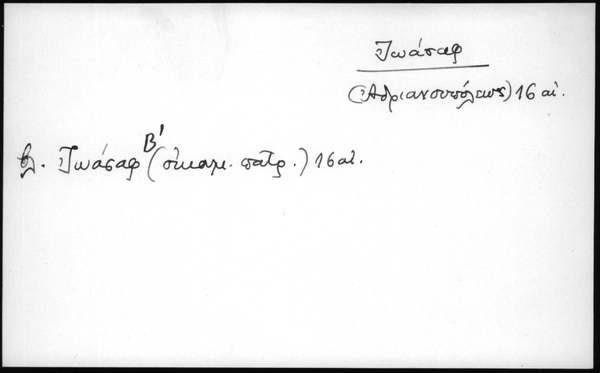 Ἰωάσαφ
(Ἀδριανουπόλεως) 16 αἰ.
βλ. Ἰωάσαφ Β' (οἰκουμ. πατρ.) 16 αἰ.